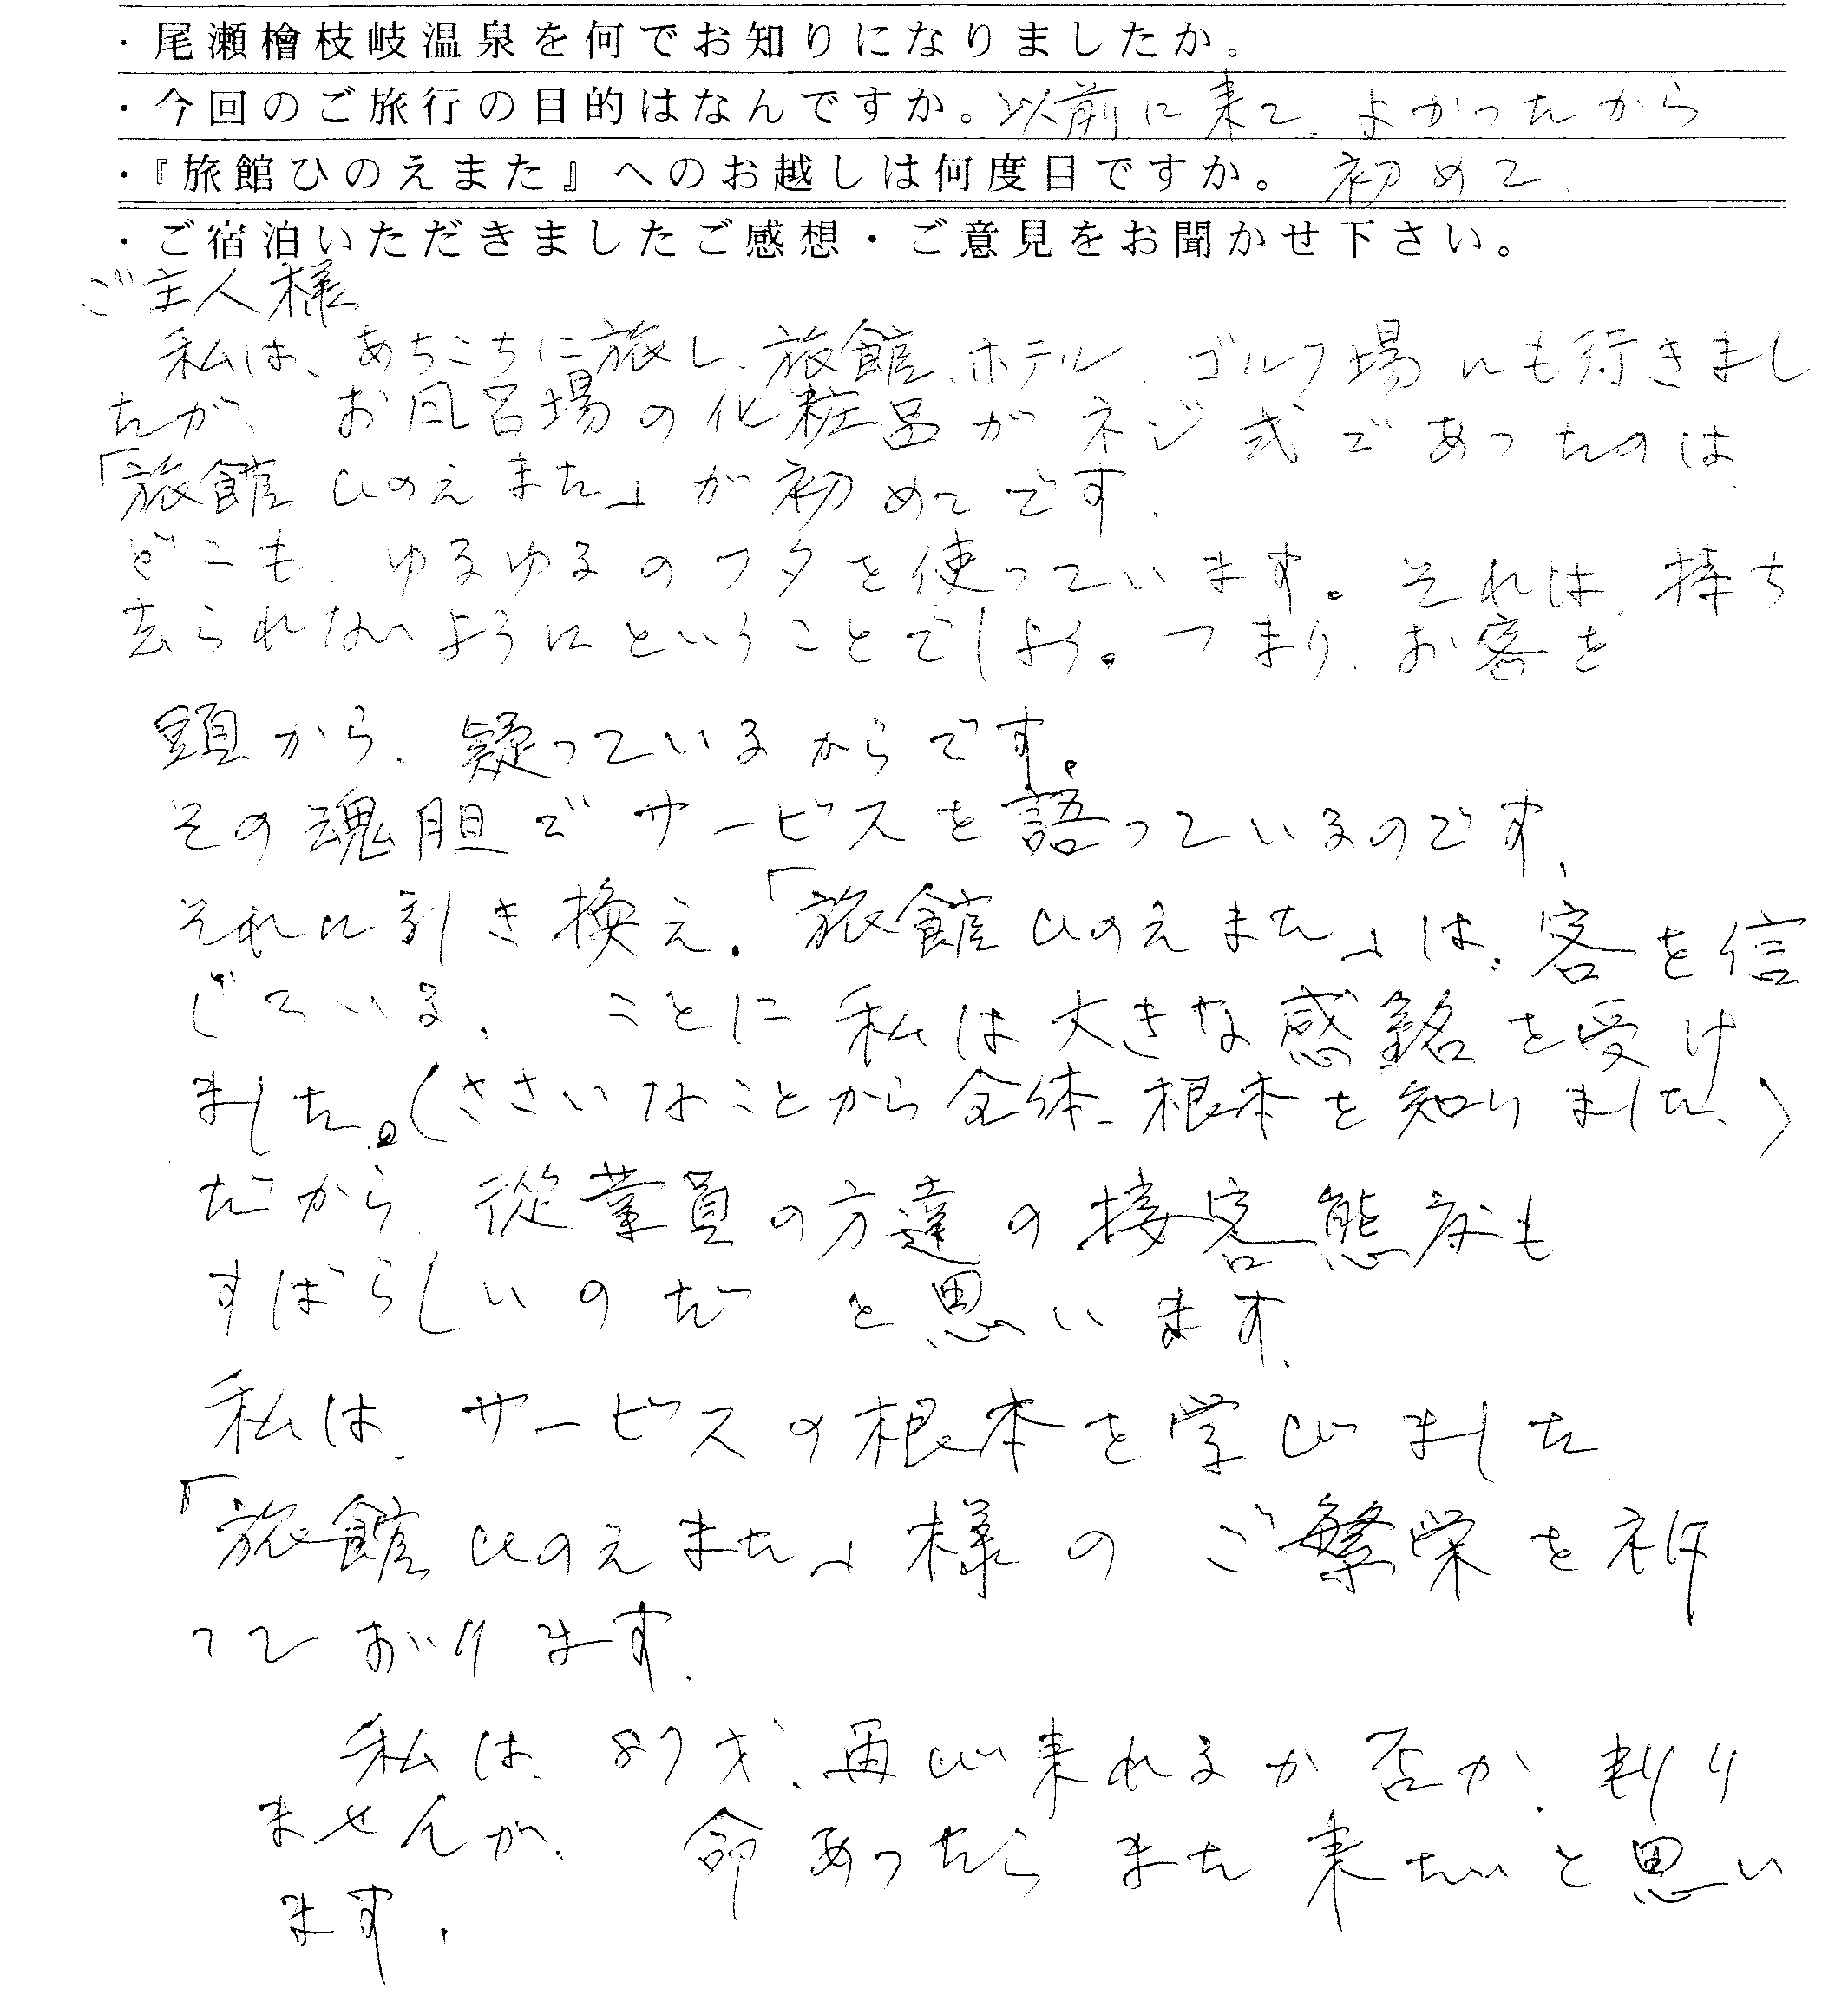 ・尾瀬檜枝岐温泉を何でお知りになりましたか。
・今回のご旅行の目的はなんですか。以前に来て、よかったから
・『旅館ひのえまた』へのお越しは何度目ですか。初めて、
・ご宿泊いただきましたご感想・ご意見をお聞かせ下さい。
ご主人様
私は、あちこちに旅し、旅館、ホテル、ゴルフ場にも行きまし
たが、お風呂場の化粧品がネジ式であったのは
「旅館ひのえまた」が初めてです。
どこも、ゆるゆるのフタを使っています。それは、持ち
去られないようにということでしょう。つまり、お客を
頭から、疑っているからです。
その魂胆でサービスを語っているのです。
それに引き換え、「旅館ひのえまた」は、客を信
じている。ことに私は大きな感銘を受け
ました。(ささいなことから全体、根本を知りました。)
だから従業員の方達の接客態度も
すばらしいのだと思います。
私は、サービスの根本を学びました
「旅館ひのえまた」様のご繁栄を祈
っております。
私は、87才、再び来れるか否か、判り
ませんが、命あったらまた来たいと思い
ます。